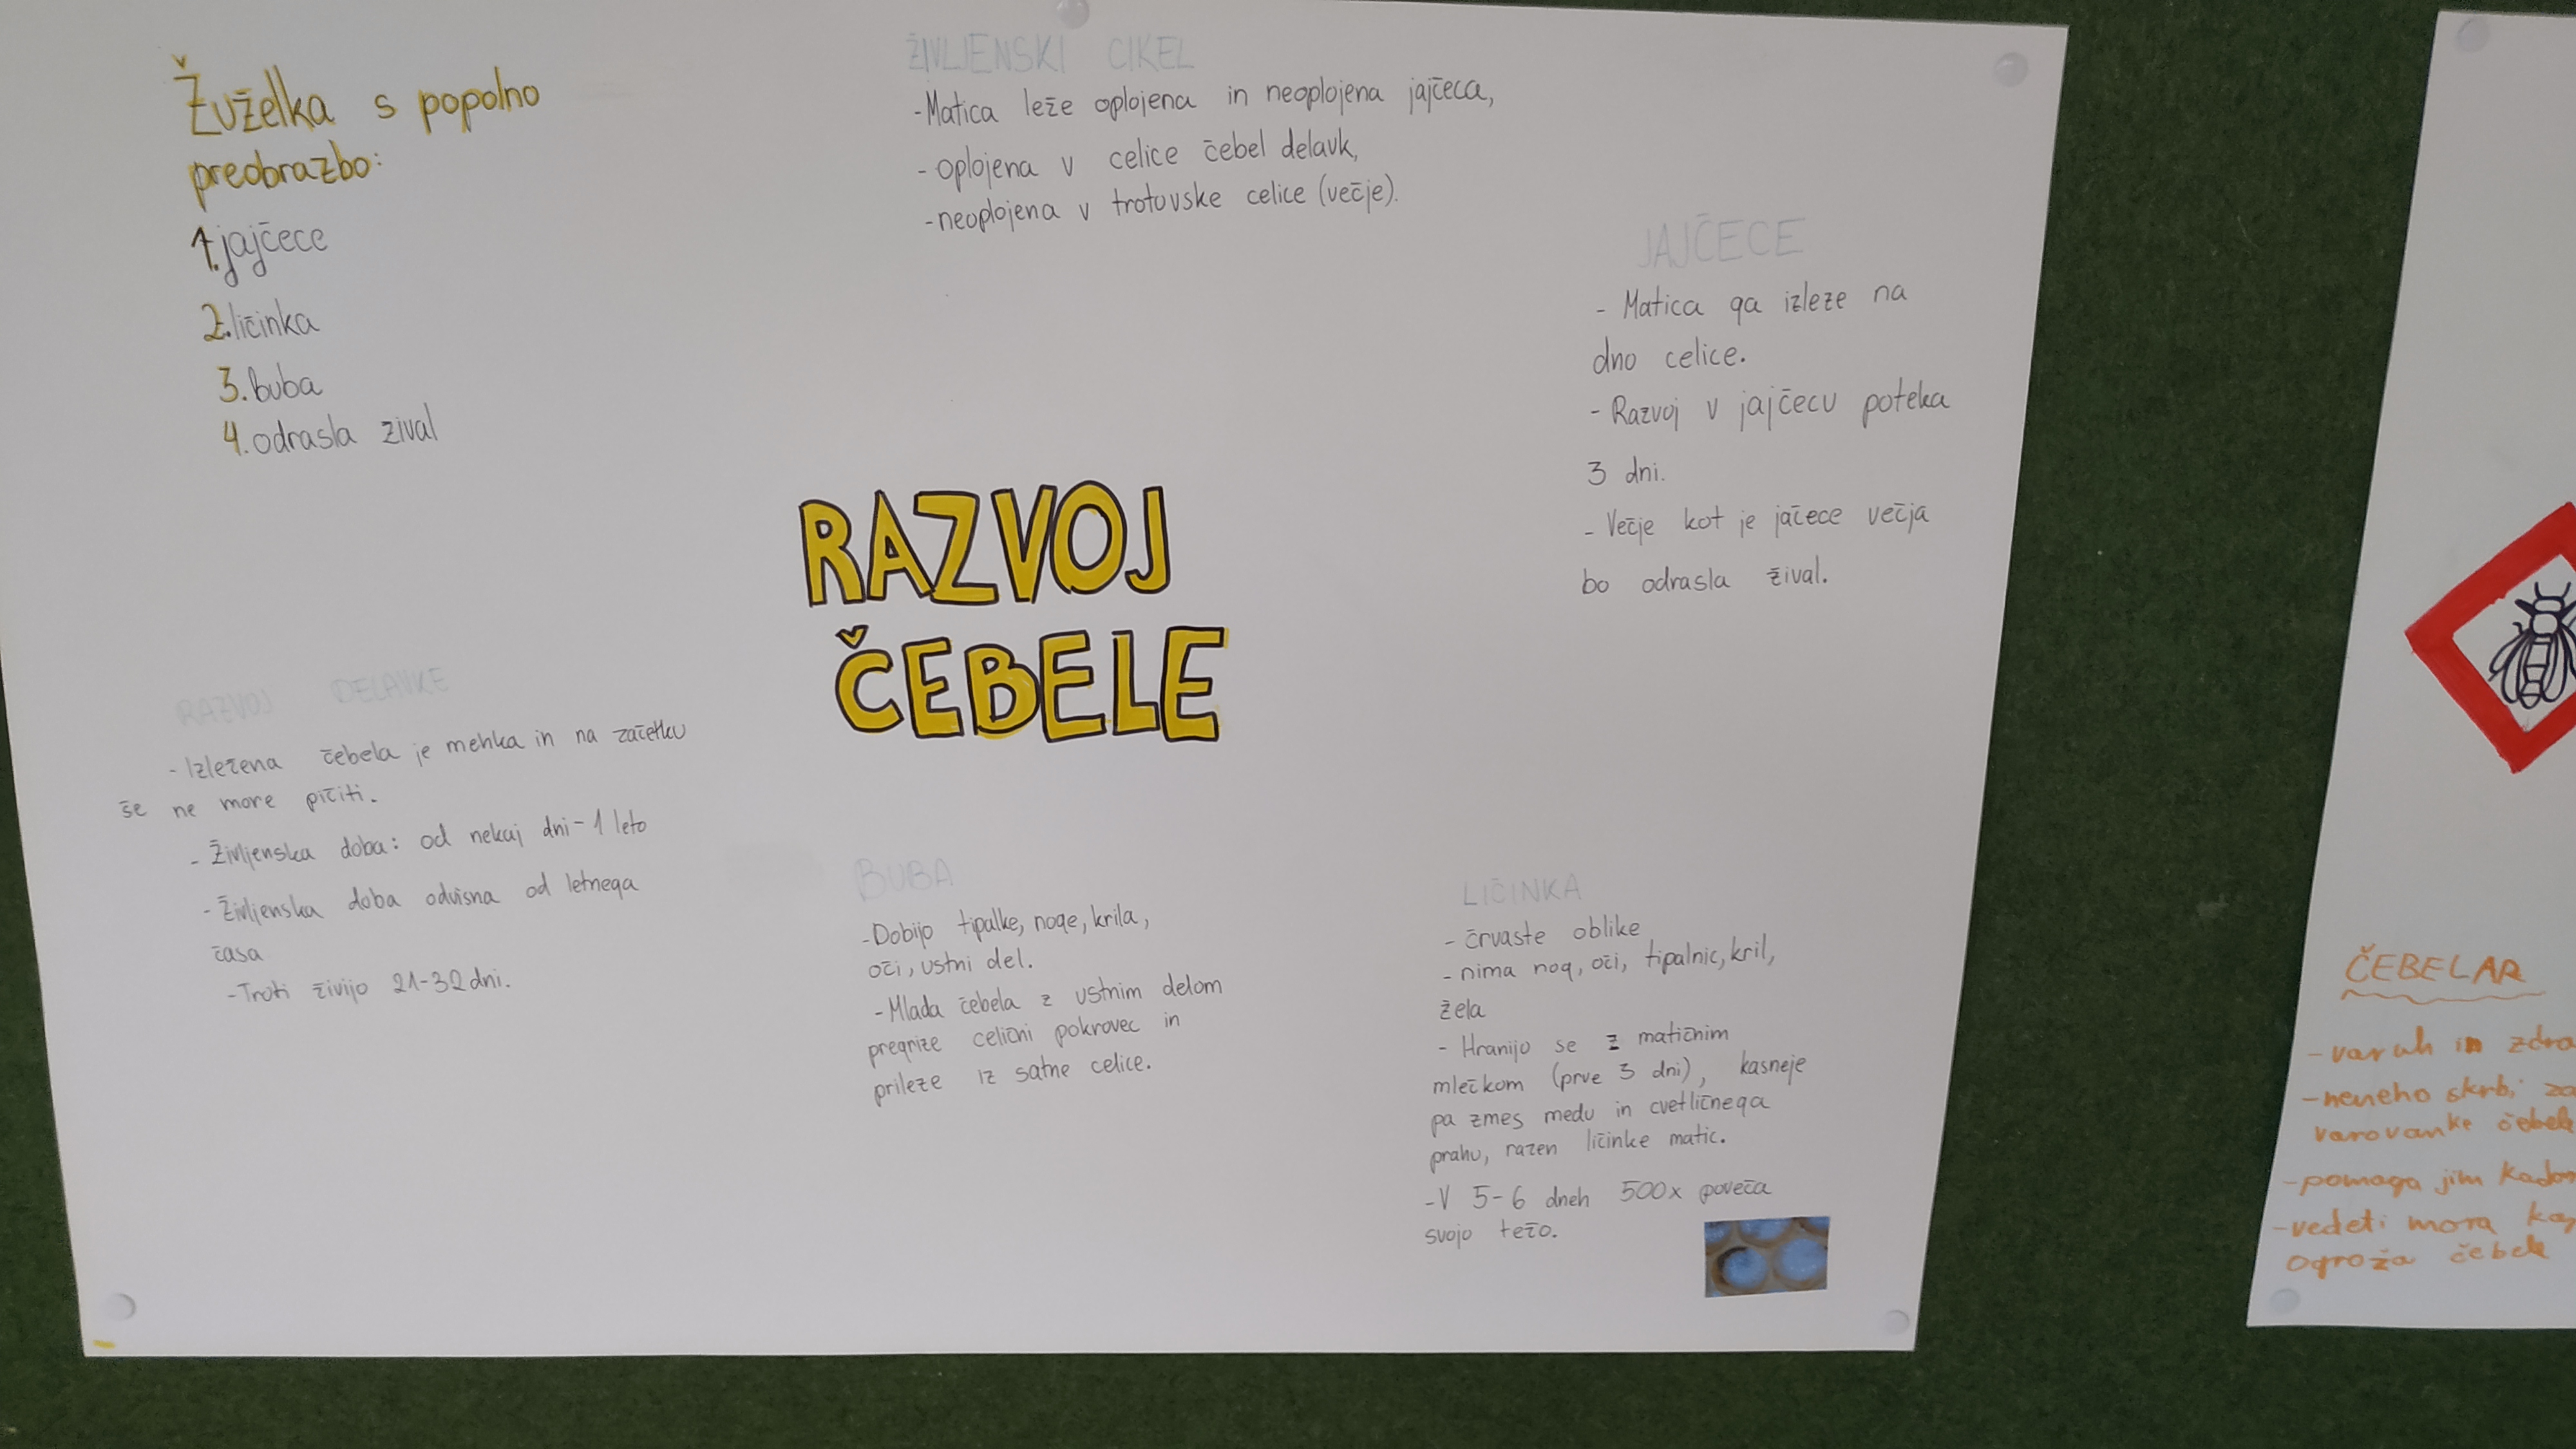 Žuželka s popolno
preobrazbo:
1.jajčece
2.ličinka
3.buba
4.odrasla zival
ŽIVLJENSKI CIKEL
-Matica leže oplojena in neoplojena jajčeca,
-oplojena v celice čebel delavk,
-neoplojena v trotovske celice (večje).
JAJČECE
- Matica ga izleže na
dno celice.
- Razvoj v jajčecu poteka
3 dni.
- Večje kot je jačece večja
bo odrasla žival.
RAZVOJ
ČEBELE
RAZVOJ DELAVKE
- Izležena čebela je mehka in na začetku
še ne more pičiti.
- Življenska doba: od nekaj dni-1 leto
- Življenska doba odvisna od letnega
časa
-Troti živijo 21-32 dni.
BUBA
-Dobijo tipalke, noge, krila,
oči, ustni del.
-Mlada čebela z ustnim delom
pregrize celični pokrovec in
prileze iz satne celice.
LIČINKA
- črvaste oblike
- nima nog, oči, tipalnic, kril,
žela
- Hranijo se z matičnim
mlečkom (prve 3 dni), kasneje
pa zmes medu in cvetličnega
prahu, razen ličinke matic.
-V 5-6 dneh 500x poveča
svojo težo.
ČEBELAR
-varuh in
-neneho skrbi
varovanke
-pomaga jim
-vedeti mora
ogroža